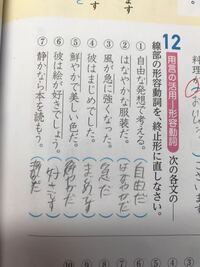 料理
12 用言の活用―形容動詞 次の各文の――
線部の形容動詞を、終止形に直しなさい。
① 自由な発想で考える。(自由だ)
② はなやかな服装だ。(はなやかだ)
③ 風が急に強くなった。(急だ)
④ 彼はまじめでした。(まじめだ)
⑤ 鮮やかで美しい色だ。(鮮やかだ)
⑥ 彼は絵が好きでしょう。(好きだ)
⑦ 静かなら本を読もう。(静かだ)
⑩ ⑨ ⑧ ⑦ ⑥ ⑤ ④ ③